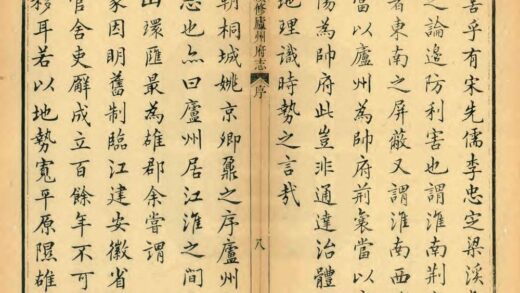 善乎有宋先儒李忠定梁溪
之論邊防利害也謂淮南荆
者東南之屏蔽又謂淮南西
當以廬州為帥府荆襄當以
陽為帥府此豈非通達治體
地理識時勢之言哉
修廬州府志
序
八
朝桐城姚京卿鼐之序廬州
志也亦曰廬州居江淮之間
山環匯最為雄郡余嘗謂
家因明舊制臨江建安徽省
官舍吏廨成立百餘年不可
移耳若以地勢寬平原隰雄